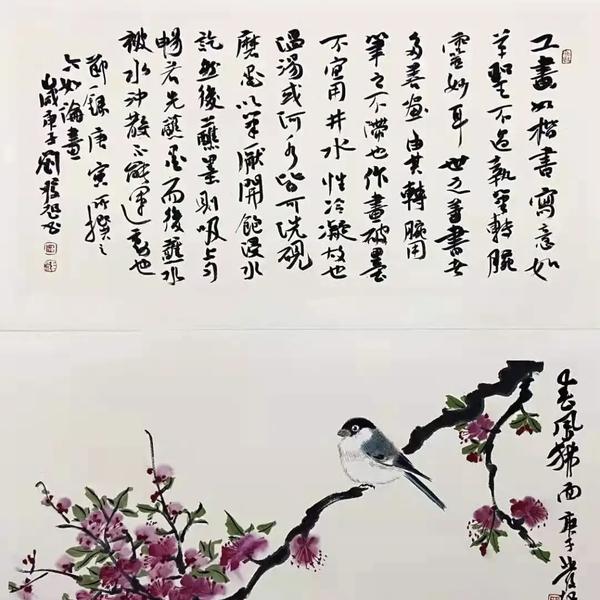 工畫如楷書寫意如
草聖不過執筆轉腕
靈妙耳世之善書者
多善畫由其轉腕用
筆之不滯也作畫破墨
不宜用井水性冷凝故也
温湯或河水皆可洗硯
磨墨以筆壓開飽浸水
訖然後蘸墨則吸上勻
暢若先蘸墨而後蘸水
被水沖散不能運動也
節錄唐寅所撰之
六如論畫
歲庚子劉
春風拂雨 庚子